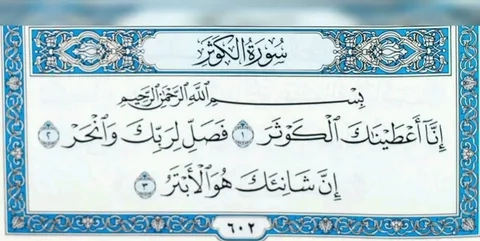 سُورَةُ الكَوْثَرِ
بِسْمِ اللَّهِ الرَّحْمَٰنِ الرَّحِيمِ
إِنَّآ أَعْطَيْنَٰكَ ٱلْكَوْثَرَ ١ فَصَلِّ لِرَبِّكَ وَٱنْحَرْ ٢
إِنَّ شَانِئَكَ هُوَ ٱلْأَبْتَرُ ٣
٦٠٢